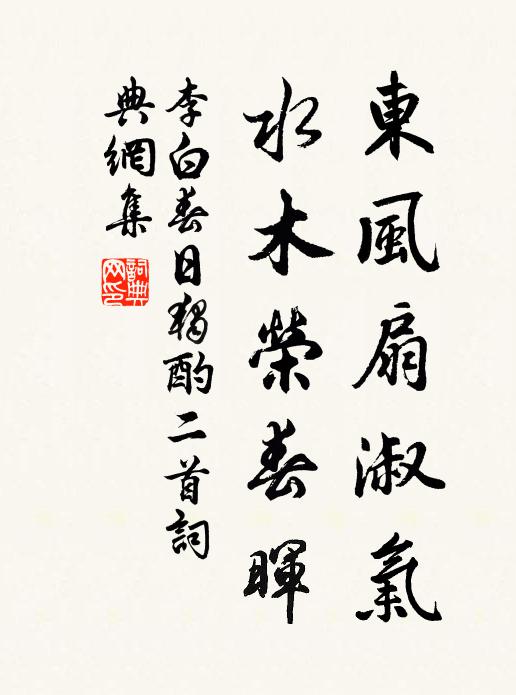 東風扇淑氣
水木榮春暉
李白春日獨酌二首詞
典網集
詞典网印